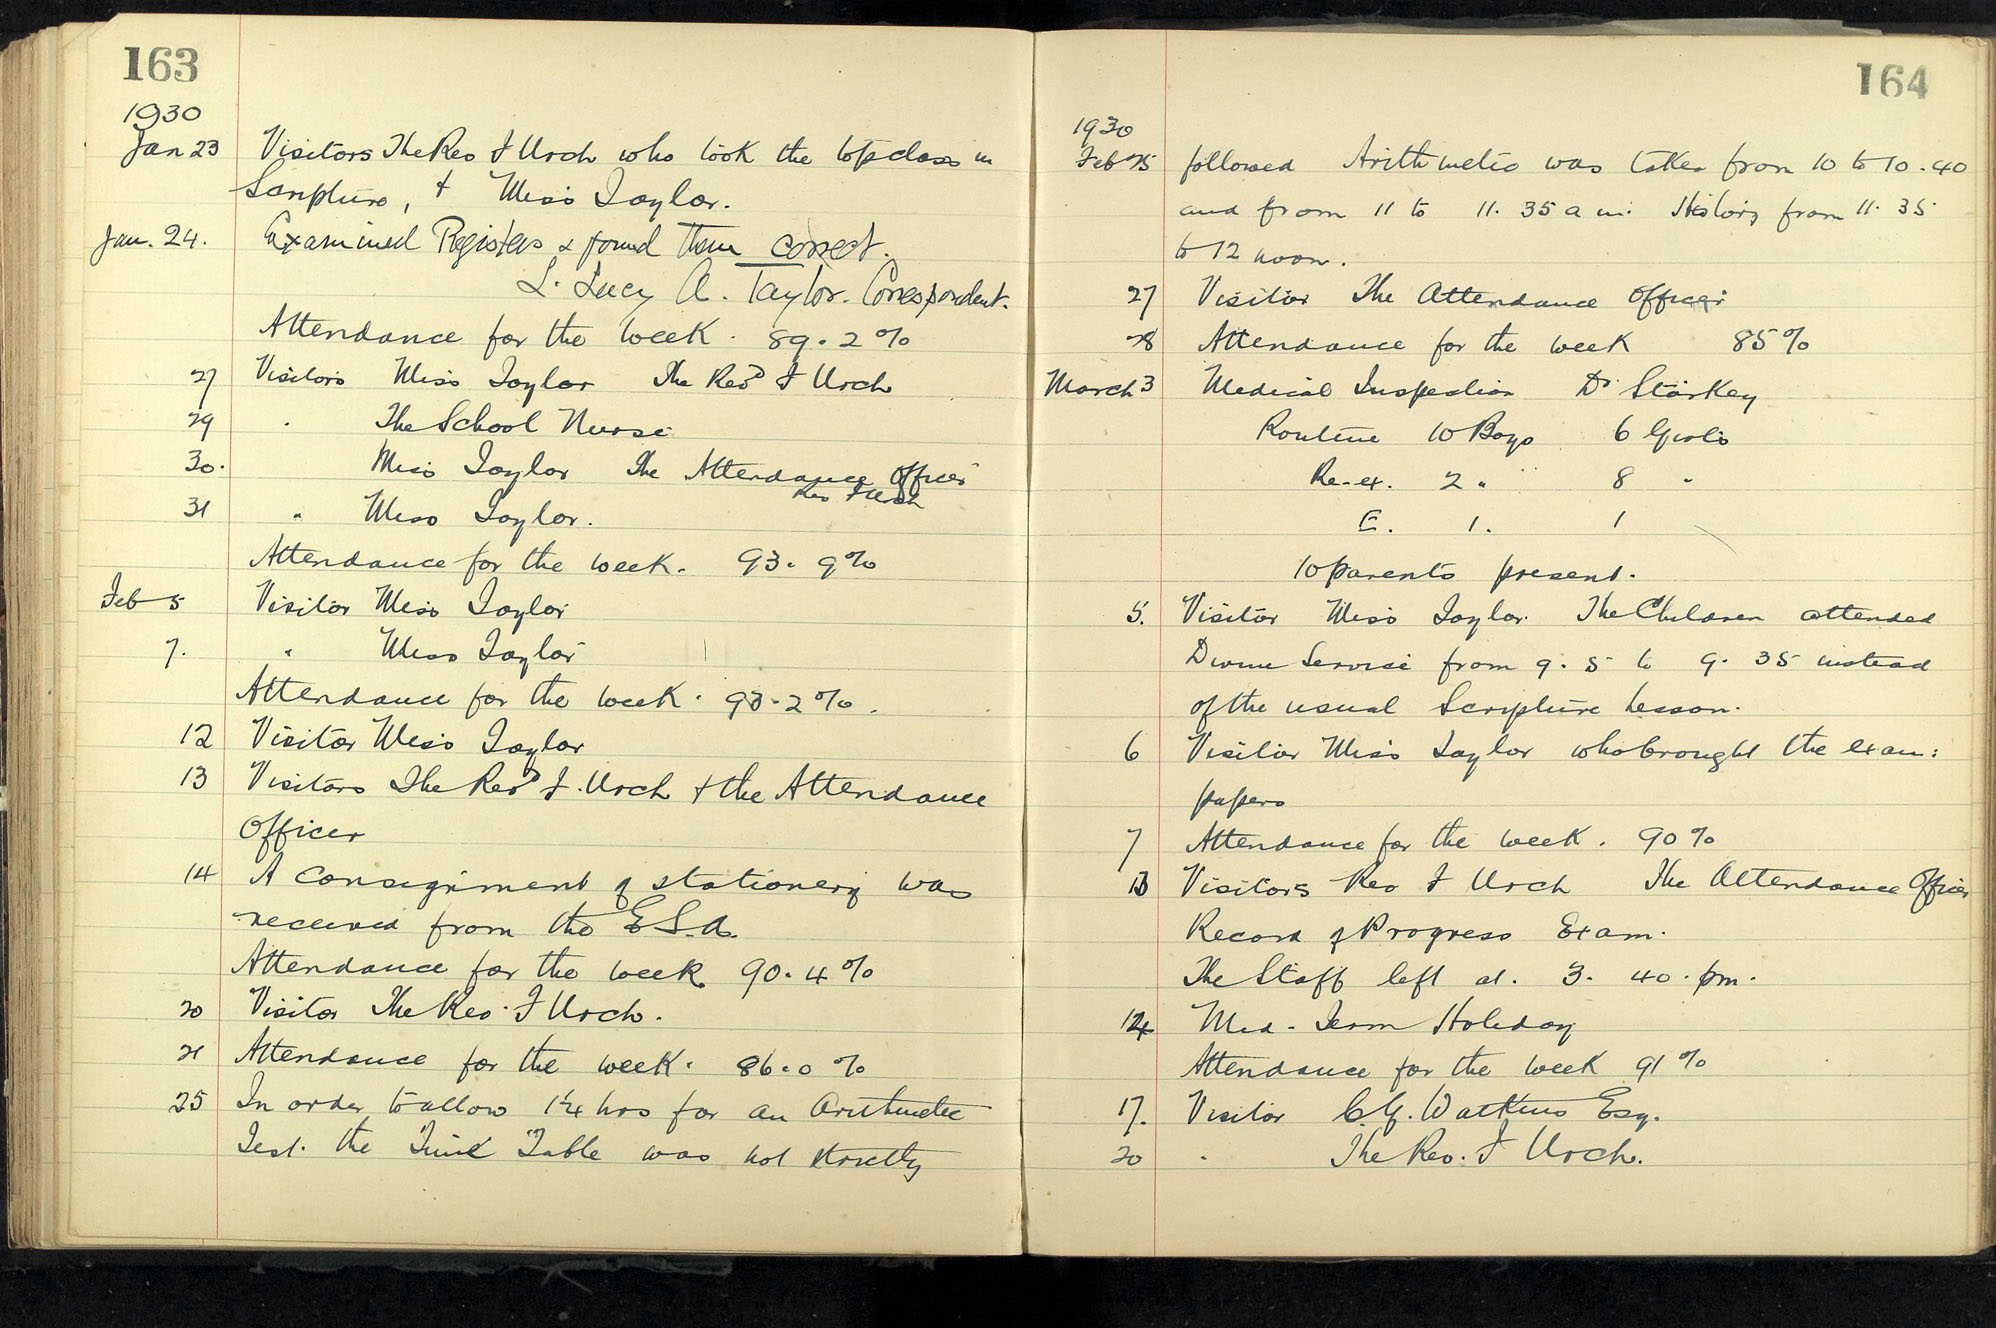 163
1930
Jan 23 Visitors The Rev J Urch who took the top class in
Scripture, & Miss Taylor.
Jan. 24. Examined Registers & found them correct.
L. Lucy A. Taylor. Correspondent.
Attendance for the week. 89.2%
27 Visitors Miss Taylor The Revd J Urch
29 " The School Nurse
30. Miss Taylor The Attendance Officer
Rev J Urch
31 " Miss Taylor.
Attendance for the week. 93.9%
Feb 5 Visitor Miss Taylor
7. " Miss Taylor
Attendance for the week. 93.2%.
12 Visitor Miss Taylor
13 Visitors The Revd J. Urch & the Attendance
Officer
14 A consignment of stationery was
received from the E.S.A.
Attendance for the week 90.4%
20 Visitor The Rev. J Urch.
21 Attendance for the week. 86.0%
25 In order to allow 1¼ hrs for an Arithmetic
Test. the Time Table was not strictly
164
1930
Feb 25 followed Arithmetic was taken from 10 to 10.40
and from 11 to 11.35 a m. History from 11.35
to 12 noon.
27 Visitor The Attendance Officer
28 Attendance for the week 85%
March 3 Medical Inspection Dr Starkey
Routine 10 Boys 6 Girls
Re-ex. 2 " 8 "
E. 1. 1
10 parents present.
5. Visitor Miss Taylor. The Children attended
Divine Service from 9.5 to 9.35 instead
of the usual Scripture Lesson.
6 Visitor Miss Taylor who brought the exam:
papers
7 Attendance for the week. 90%
13 Visitors Rev J Urch The Attendance Officer
Record of Progress Exam.
The Staff left at. 3.40.pm.
14 Mid-Term Holiday
Attendance for the week 91%
17. Visitor C.G. Watkins Esq.
20 " The Rev. J Urch.